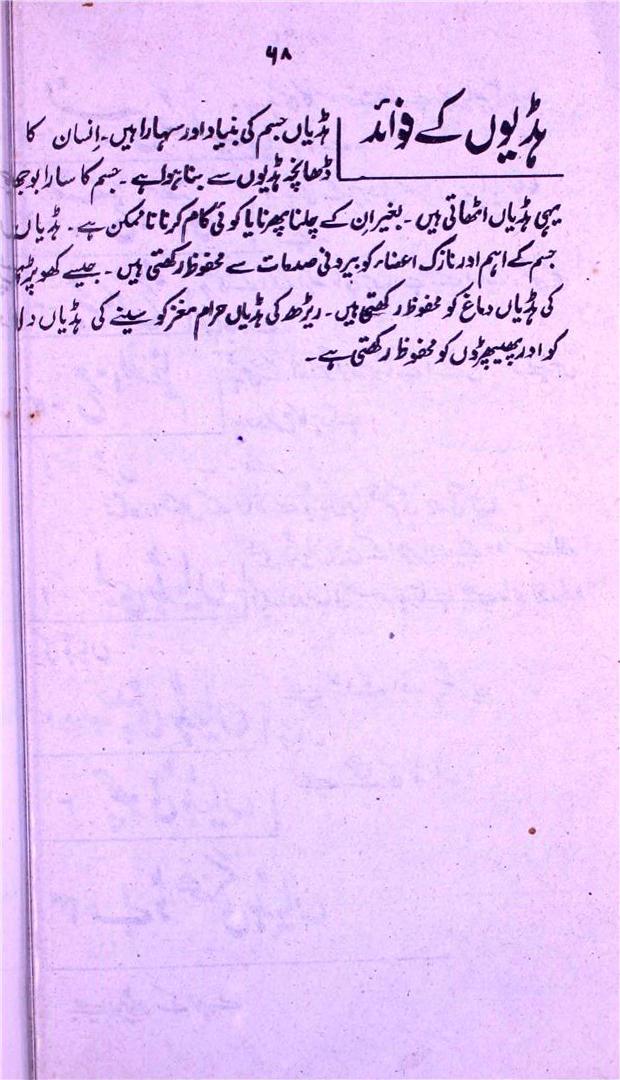 ۶۸
ہڈیوں کے فوائد
ہڈیاں جسم کی بنیاد اور سہارا ہیں۔ انسان کا
ڈھانچہ ہڈیوں سے بنا ہوا ہے۔ جسم کا سارا بوجھ
یہی ہڈیاں اٹھاتی ہیں۔ بغیر ان کے چلنا پھرنا یا کوئی کام کرنا ناممکن ہے۔ ہڈیاں
جسم کے اہم اور نازک اعضاء کو بیرونی صدمات سے محفوظ رکھتی ہیں۔ جیسے کھوپڑی
کی ہڈیاں دماغ کو محفوظ رکھتی ہیں۔ ریڑھ کی ہڈیاں حرام مغز کو سینے کی ہڈیاں دل
کو اور پھیپھڑوں کو محفوظ رکھتی ہے۔